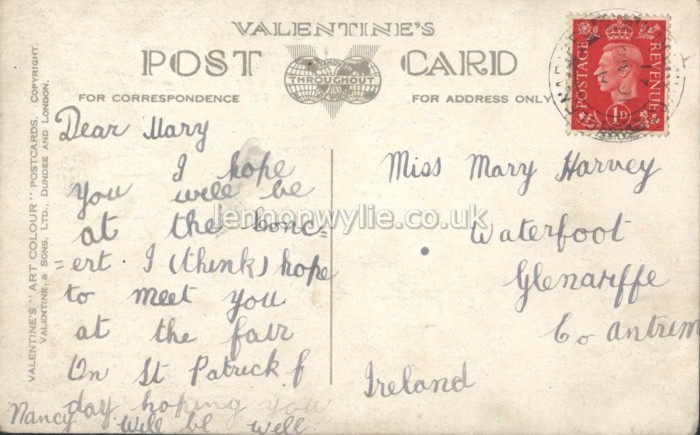 VALENTINE'S
POST CARD
THROUGHOUT
FOR CORRESPONDENCE
FOR ADDRESS ONLY
VALENTINE'S "ART COLOUR" POSTCARDS. COPYRIGHT.
VALENTINE, & SONS, LTD., DUNDEE AND LONDON.
POSTAGE REVENUE
1D
Dear Mary
I hope
you will be
at the conc=
=ert I (think) hope
to meet you
at the fair
On St Patrick
day hoping you
will be well.
Nancy
Miss Mary Harvey
Waterfoot
Glenariffe
Co Antrim
Ireland
lennonwylie.co.uk